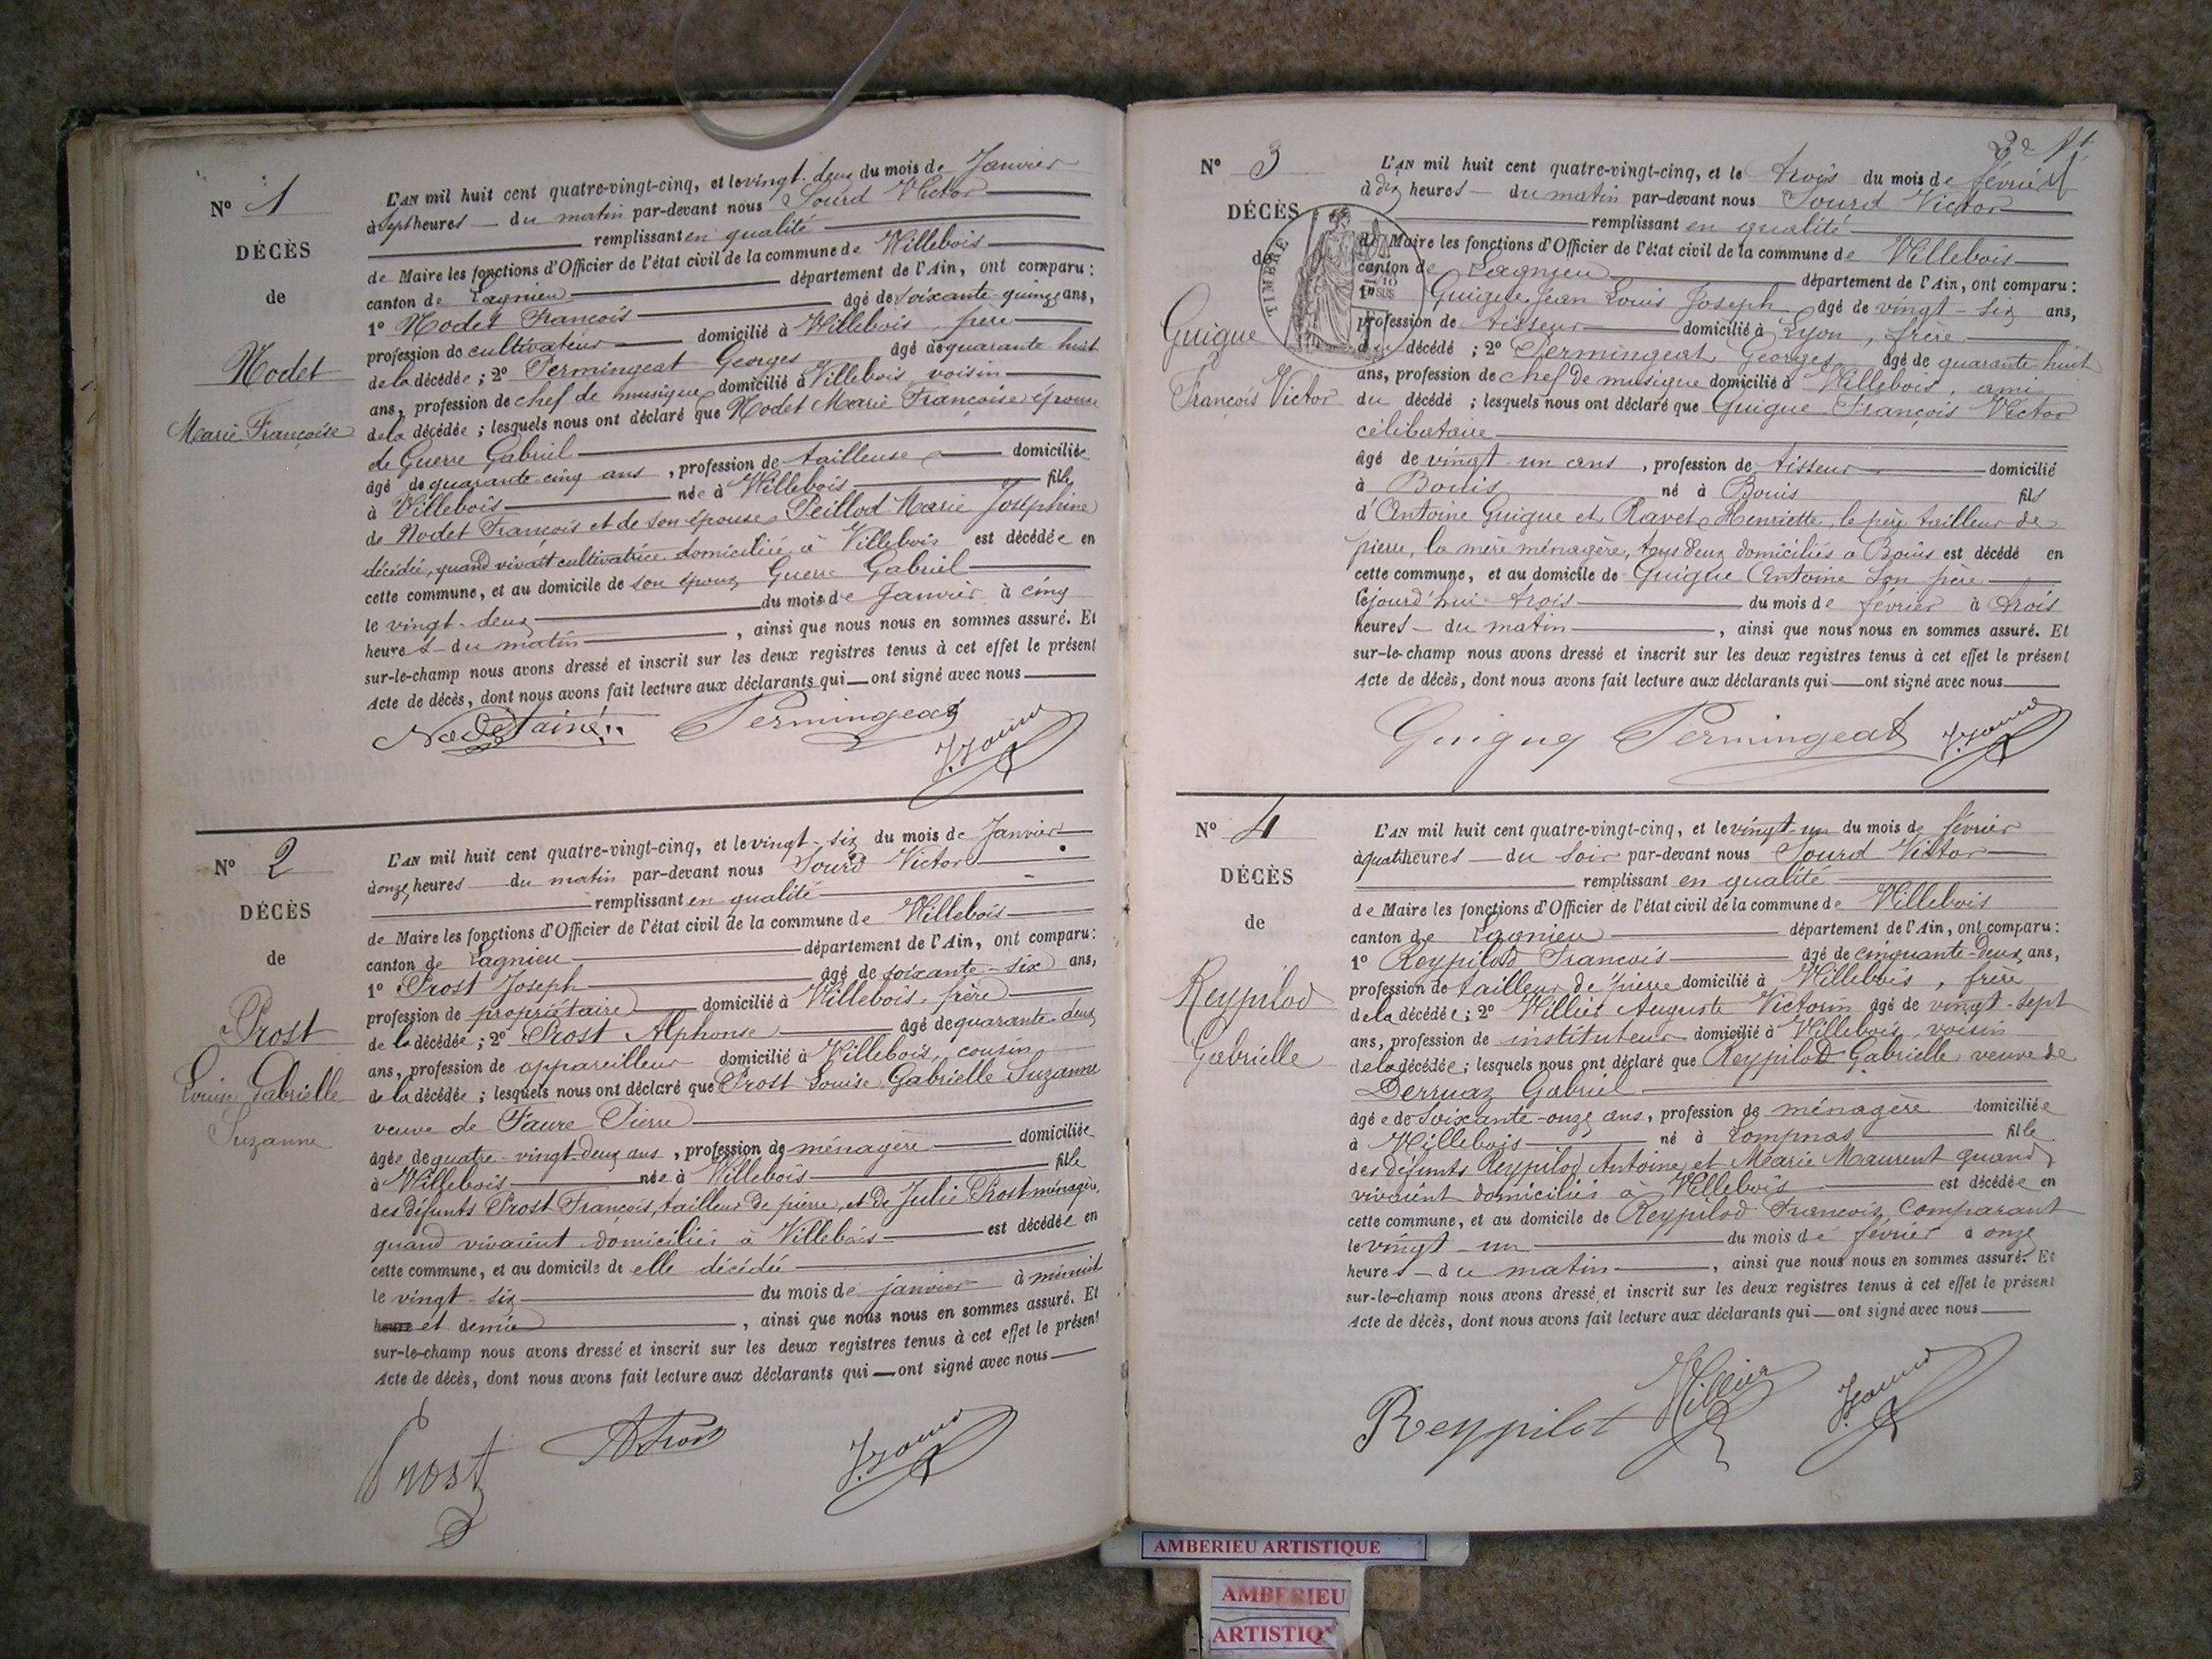 N° 1
DÉCÈS
de
Nodet
Marie Françoise
L'AN mil huit cent quatre-vingt-cinq, et le vingt-deux du mois de Janvier
à sept heures du matin par-devant nous Sourd Victor
remplissant en qualité
de Maire les fonctions d'Officier de l'état civil de la commune de Villebois
canton de Lagnieu département de l'Ain, ont comparu :
1° Nodet François âgé de soixante-quinze ans,
profession de cultivateur domicilié à Villebois, père
de la décédée ; 2° Permingeat Georges âgé de quarante huit
ans, profession de chef de musique domicilié à Villebois voisin
de la décédée ; lesquels nous ont déclaré que Nodet Marie Françoise épouse
de Guerre Gabriel
âgé de quarante-cinq ans, profession de tailleuse domiciliée
à Villebois née à Villebois fille
de Nodet François et de son épouse Peillod Marie Joséphine
décédée, quand vivait cultivatrice domiciliée à Villebois est décédée en
cette commune, et au domicile de son époux Guerre Gabriel
le vingt-deux du mois de Janvier à cinq
heures du matin, ainsi que nous nous en sommes assuré. Et
sur-le-champ nous avons dressé et inscrit sur les deux registres tenus à cet effet le présent
Acte de décès, dont nous avons fait lecture aux déclarants qui ont signé avec nous
Nodet ainé Permingeat
N° 2
DÉCÈS
de
Prost
Louise Gabrielle
Suzanne
L'AN mil huit cent quatre-vingt-cinq, et le vingt-six du mois de Janvier
à onze heures du matin par-devant nous Sourd Victor
remplissant en qualité
de Maire les fonctions d'Officier de l'état civil de la commune de Villebois
canton de Lagnieu département de l'Ain, ont comparu :
1° Prost Joseph âgé de soixante-six ans,
profession de propriétaire domicilié à Villebois, frère
de la décédée ; 2° Prost Alphonse âgé de quarante-deux
ans, profession de appareilleur domicilié à Villebois, cousin
de la décédée ; lesquels nous ont déclaré que Prost Louise Gabrielle Suzanne
veuve de Faure Pierre
âgée de quatre-vingt-deux ans, profession de ménagère domiciliée
à Villebois née à Villebois fille
des défunts Prost François, tailleur de pierre, et de Julie Prost ménagère,
quand vivaient domiciliés à Villebois est décédée en
cette commune, et au domicile de elle décédée
le vingt-six du mois de janvier à minuit
heure et demie, ainsi que nous nous en sommes assuré. Et
sur-le-champ nous avons dressé et inscrit sur les deux registres tenus à cet effet le présent
Acte de décès, dont nous avons fait lecture aux déclarants qui ont signé avec nous
Prost A Prost
N° 3
DÉCÈS
de
TIMBRE
Guigue
François Victor
L'AN mil huit cent quatre-vingt-cinq, et le trois du mois de février
à dix heures du matin par-devant nous Sourd Victor
remplissant en qualité
de Maire les fonctions d'Officier de l'état civil de la commune de Villebois
canton de Lagnieu département de l'Ain, ont comparu :
1° Guigue Jean Louis Joseph âgé de vingt-six ans,
profession de tisseur domicilié à Lyon, frère
du décédé ; 2° Permingeat Georges âgé de quarante-huit
ans, profession de chef de musique domicilié à Villebois, ami
du décédé ; lesquels nous ont déclaré que Guigue François Victor
célibataire
âgé de vingt-un ans, profession de tisseur domicilié
à Bouis né à Bouis fils
d'Antoine Guigue et Ravet Henriette, le père tailleur de
pierre, la mère ménagère, tous deux domiciliés à Bouis est décédé en
cette commune, et au domicile de Guigue Antoine son père
cejourd'hui trois du mois de février à trois
heures du matin, ainsi que nous nous en sommes assuré. Et
sur-le-champ nous avons dressé et inscrit sur les deux registres tenus à cet effet le présent
Acte de décès, dont nous avons fait lecture aux déclarants qui ont signé avec nous
Guigue Permingeat
N° 4
DÉCÈS
de
Reypilod
Gabrielle
L'AN mil huit cent quatre-vingt-cinq, et le vingt-un du mois de février
à quatre heures du soir par-devant nous Sourd Victor
remplissant en qualité
de Maire les fonctions d'Officier de l'état civil de la commune de Villebois
canton de Lagnieu département de l'Ain, ont comparu :
1° Reypilod François âgé de cinquante-deux ans,
profession de tailleur de pierre domicilié à Villebois, frère
de la décédée ; 2° Villier Auguste Victorin âgé de vingt-sept
ans, profession de instituteur domicilié à Villebois, voisin
de la décédée ; lesquels nous ont déclaré que Reypilod Gabrielle veuve de
Derruaz Gabriel
âgée de soixante-onze ans, profession de ménagère domiciliée
à Villebois né à Lompnas fille
des défunts Reypilod Antoine et Marie Maurent quand
vivaient domiciliés à Villebois est décédée en
cette commune, et au domicile de Reypilod François comparant
le vingt-un du mois de février à onze
heures du matin, ainsi que nous nous en sommes assuré. Et
sur-le-champ nous avons dressé et inscrit sur les deux registres tenus à cet effet le présent
Acte de décès, dont nous avons fait lecture aux déclarants qui ont signé avec nous
Reypilot Villier
AMBERIEU ARTISTIQUE
AMBERIEU
ARTISTIQ